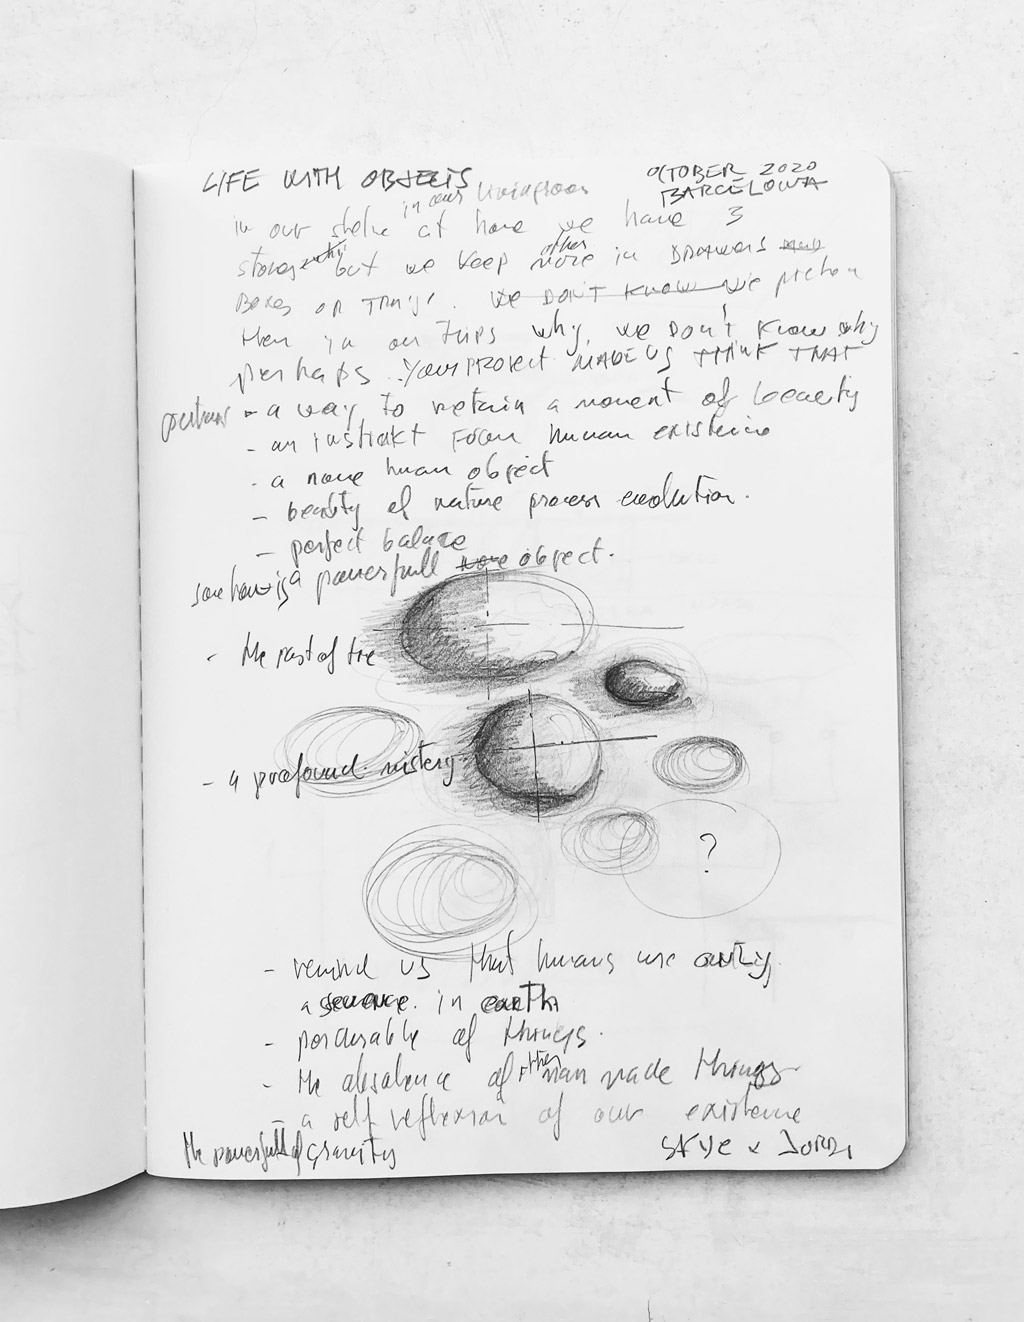 LIFE WITH OBJECTS
OCTOBER 2020
BARCELONA
in our livingroom
in our at home we have 3
stones but we keep other more in DRAWERS
BOXES OR . WE DON'T KNOW We
then in our TRIPS why, we DON'T KNOW why
perhaps. YOUR PROJECT MADE US THINK THAT
- a way to retain a moment of beauty
- an instinkt FROM human existence
- a none human object
- beauty of nature process evolution.
- perfect balace
somehow is a powerfull object.
- the past of
- a profound mistery
?
- remind us that humans are
a in earth
- of things.
- the absence of other man made things
- a self reflexion of our existence
the powerfull of gravity
SKYE x JORDI